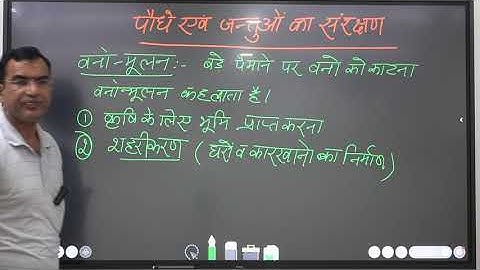 पौधे एवं जन्तुओं का संरक्षण
वनो-मूलन:- बडे पैमाने पर वनो को काटना
वनोन्मूलन कहलाता है।
① कृषि के लिए भूमि प्राप्त करना
② शहरीकरण (घरों व कारखानो का निर्माण)